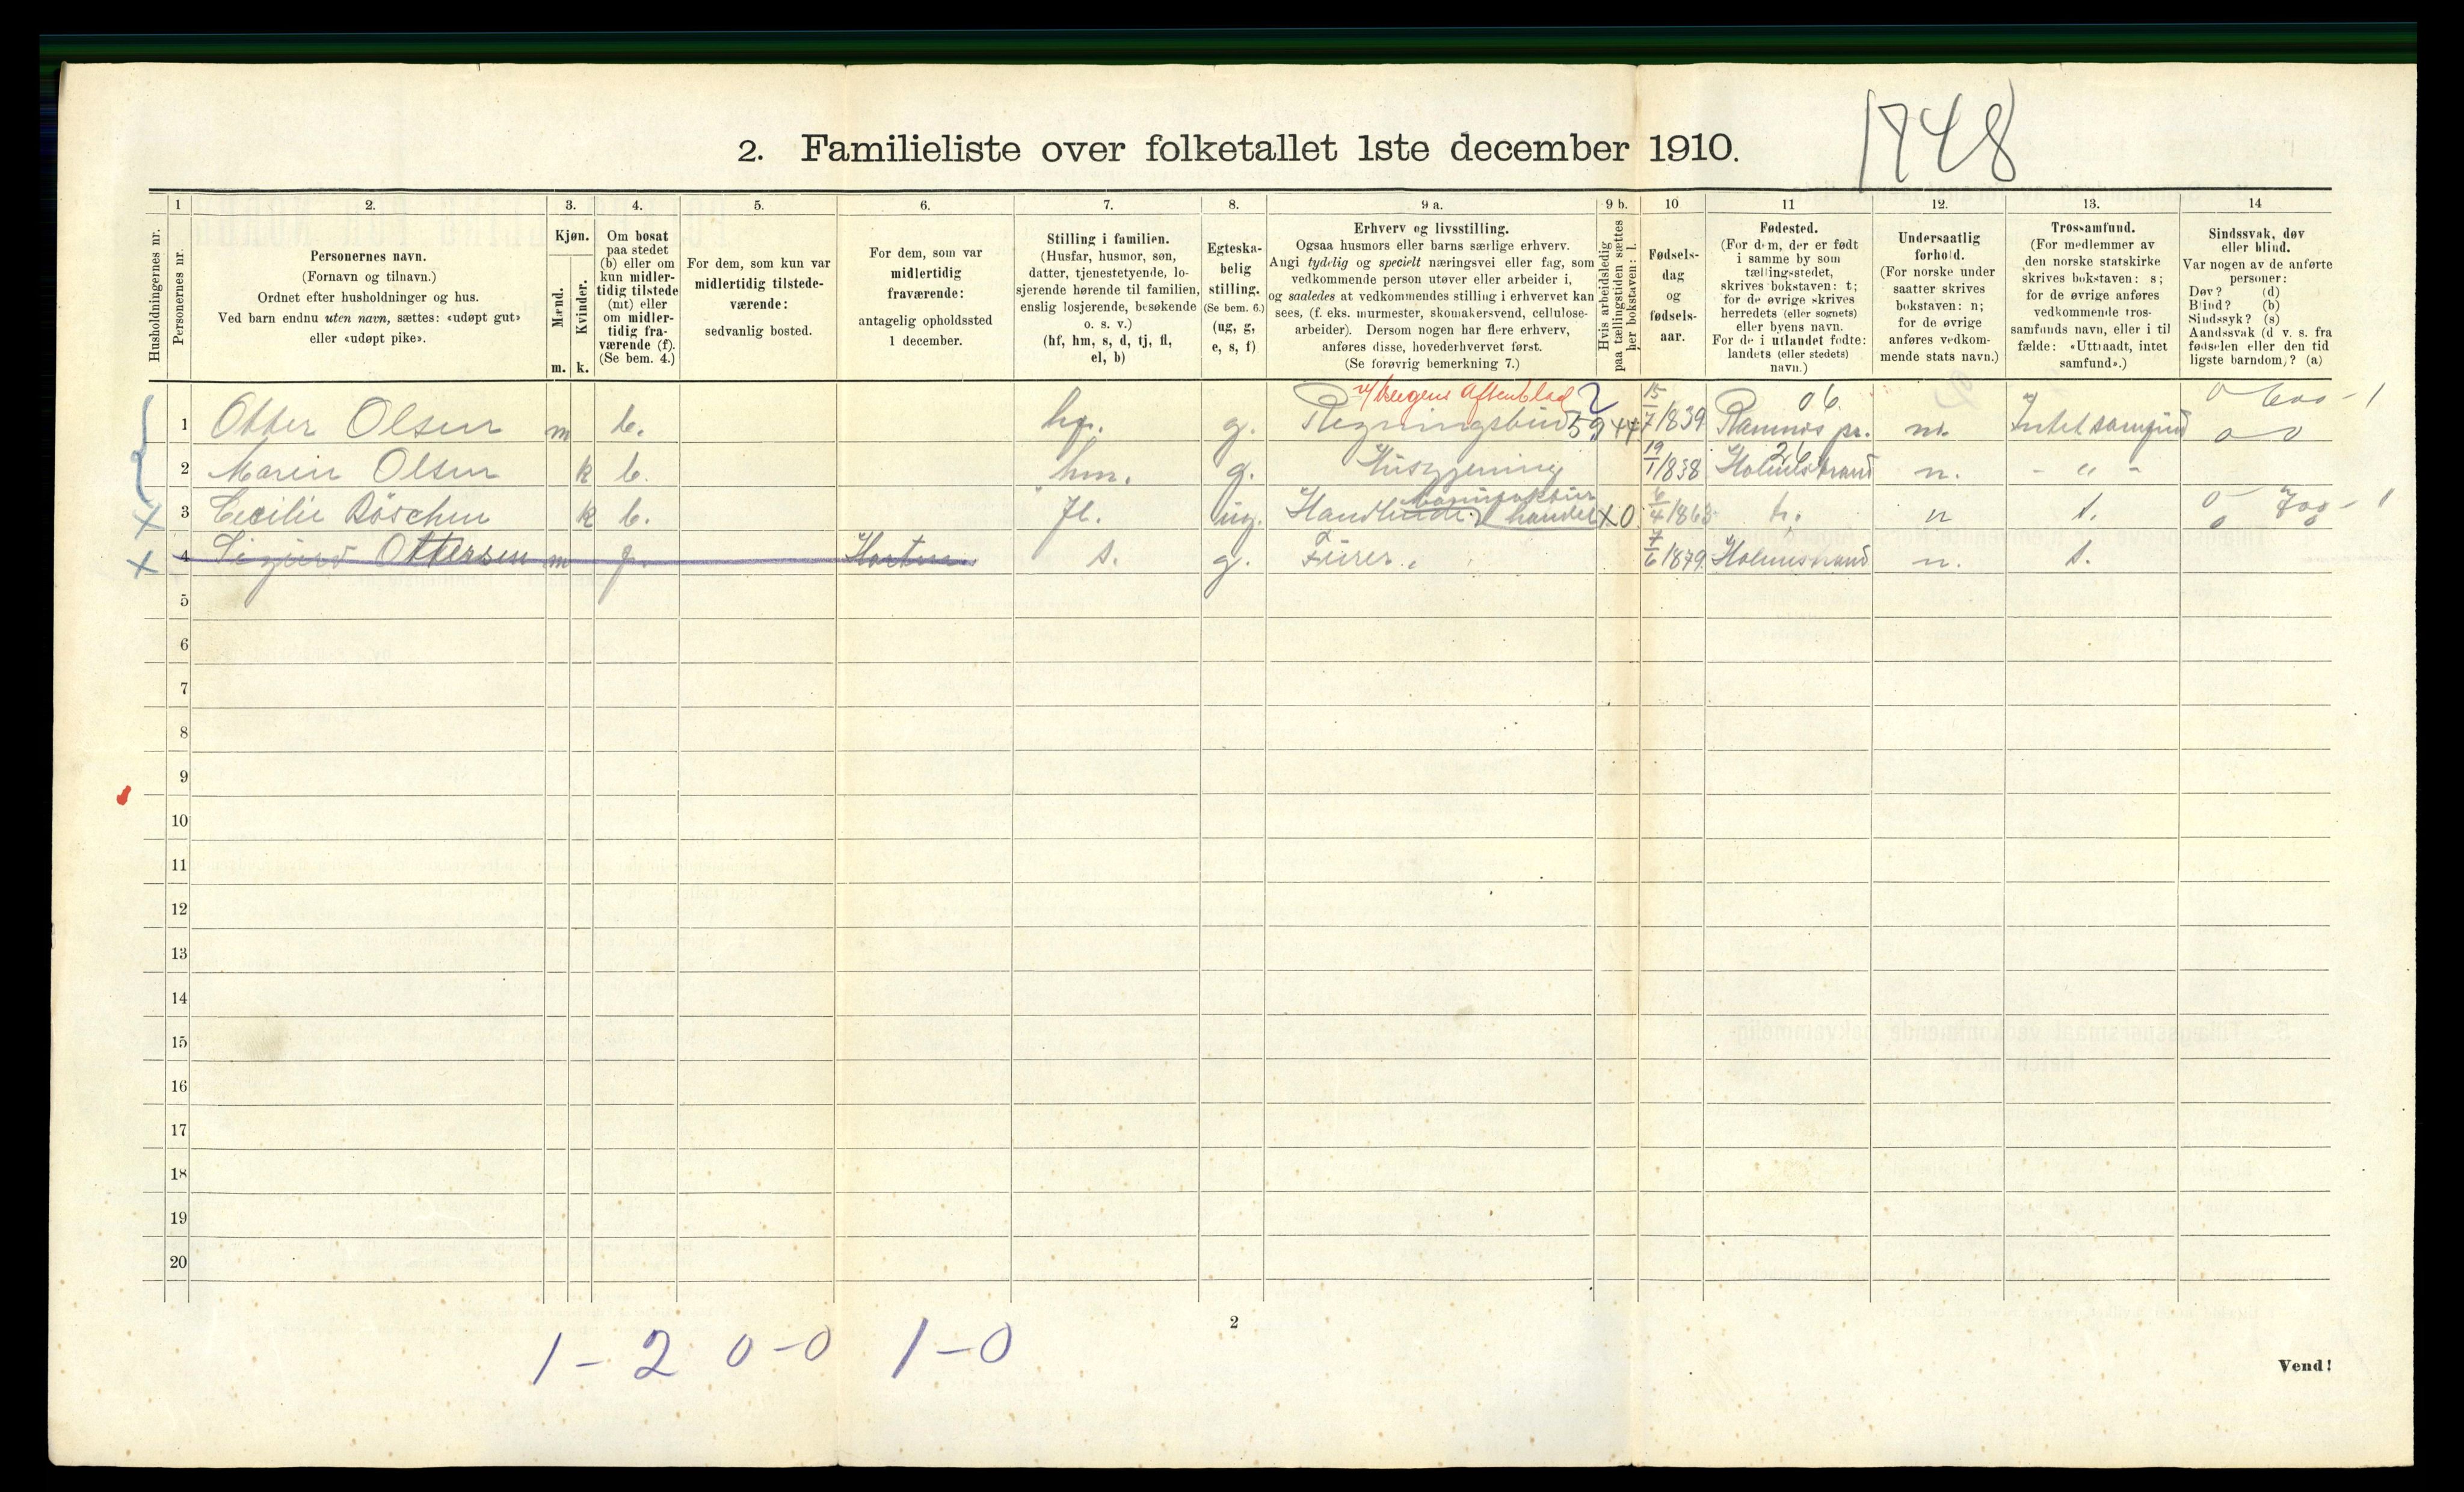 1748
2. Familieliste over folketallet 1ste december 1910.
Husholdningernes nr.
1
Personernes nr.
2.
Personernes navn.
(Fornavn og tilnavn.)
Ordnet efter husholdninger og hus.
Ved barn endnu uten navn, sættes: «udøpt gut»
eller «udøpt pike».
3.
Kjøn.
Mænd.
Kvinder.
m. k.
4.
Om bosat
paa stedet
(b) eller om
kun midler-
tidig tilstede
(mt) eller
om midler-
tidig fra-
værende (f).
(Se bem. 4.)
5.
For dem, som kun var
midlertidig tilstede-
værende:
sedvanlig bosted.
6.
For dem, som var
midlertidig
fraværende:
antagelig opholdssted
1 december.
7.
Stilling i familien.
(Husfar, husmor, søn,
datter, tjenestetyende, lo-
sjerende hørende til familien,
enslig losjerende, besøkende
o. s. v.)
(hf, hm, s, d, tj, fl,
el, b)
8.
Egteska-
belig
stilling.
(Se bem. 6.)
(ug, g,
e, s, f)
9 a.
Erhverv og livsstilling.
Ogsaa husmors eller barns særlige erhverv.
Angi tydelig og specielt næringsvei eller fag, som
vedkommende person utøver eller arbeider i,
og saaledes at vedkommendes stilling i erhvervet kan
sees, (f. eks. murmester, skomakersvend, cellulose-
arbeider). Dersom nogen har flere erhverv,
anføres disse, hovederhvervet først.
(Se forøvrig bemerkning 7.)
9 b.
Hvis arbeidsledig
paa tællingstiden sættes
her bokstaven: l.
10
Fødsels-
dag
og
fødsels-
aar.
11
Fødested.
(For dem, der er født
i samme by som
tællingsstedet,
skrives bokstaven: t;
for de øvrige skrives
herredets (eller sognets)
eller byens navn.
For de i utlandet fødte:
landets (eller stedets)
navn.)
12.
Undersaatlig
forhold.
(For norske under
saatter skrives
bokstaven: n;
for de øvrige
anføres vedkom-
mende stats navn.)
13.
Trossamfund.
(For medlemmer av
den norske statskirke
skrives bokstaven: s;
for de øvrige anføres
vedkommende tros-
samfunds navn, eller i til
fælde: «Uttraadt, intet
samfund».)
14
Sindssvak, døv
eller blind.
Var nogen av de anførte
personer:
Døv? (d)
Blind? (b)
Sindssyk? (s)
Aandssvak (d. v. s. fra
fødselen eller den tid
ligste barndom)? (a)
Bergens Aftenblad
1 Otter Olsen m b. hf. g. Regningsbud 15/7 1839 Ramnes pr. n. Intet samfund
2 Maren Olsen k b. hm. g. Husgjerning 19/1 1838 Holmestrand n. - " -
3 Cecilie Böschen k b. fl. ug. Handlende manufaktur handel 6/4 1863 t. n s.
4 Sigurd Ottersen m f. Horten s. g. Fürer. 7/6 1879 Holmestrand n. s.
5
6
7
8
9
10
11
12
13
14
15
16
17
18
19
20
1 - 2 0 - 0 1 - 0
2
Vend!